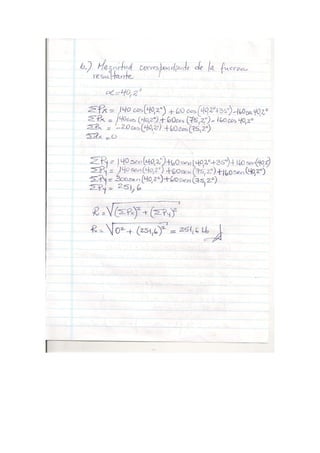 b.) Magnitud correspondiente de la fuerza
resultante
α=40,2°
ΣFx = 140 cos(40,2°) + 60 cos(40,2°+35°) - 160 cos 40,2°
ΣFx = 140 cos(40,2°) + 60 cos(75,2°) - 160 cos 40,2°
ΣFx = -20 cos(40,2°) + 60 cos(75,2°)
ΣFx = 0
ΣFy = 140 sen(40,2°) + 60 sen(40,2°+35°) + 160 sen(40,2)
ΣFy = 140 sen(40,2°) + 60 sen(75,2°) + 160 sen(40,2°)
ΣFy = 300 sen(40,2°) + 60 sen(75,2°)
ΣFy = 251,6
R = √(ΣFx)² + (ΣFy)²
R = √0² + (251,6)² = 251,6 Lb